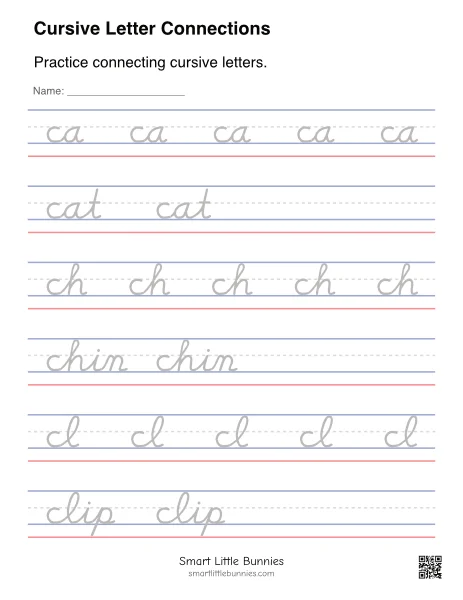 Cursive Letter Connections
Practice connecting cursive letters.
Name: ____________________
ca ca ca ca ca
cat cat
ch ch ch ch ch
chin chin
cl cl cl cl cl
clip clip
Smart Little Bunnies
smartlittlebunnies.com